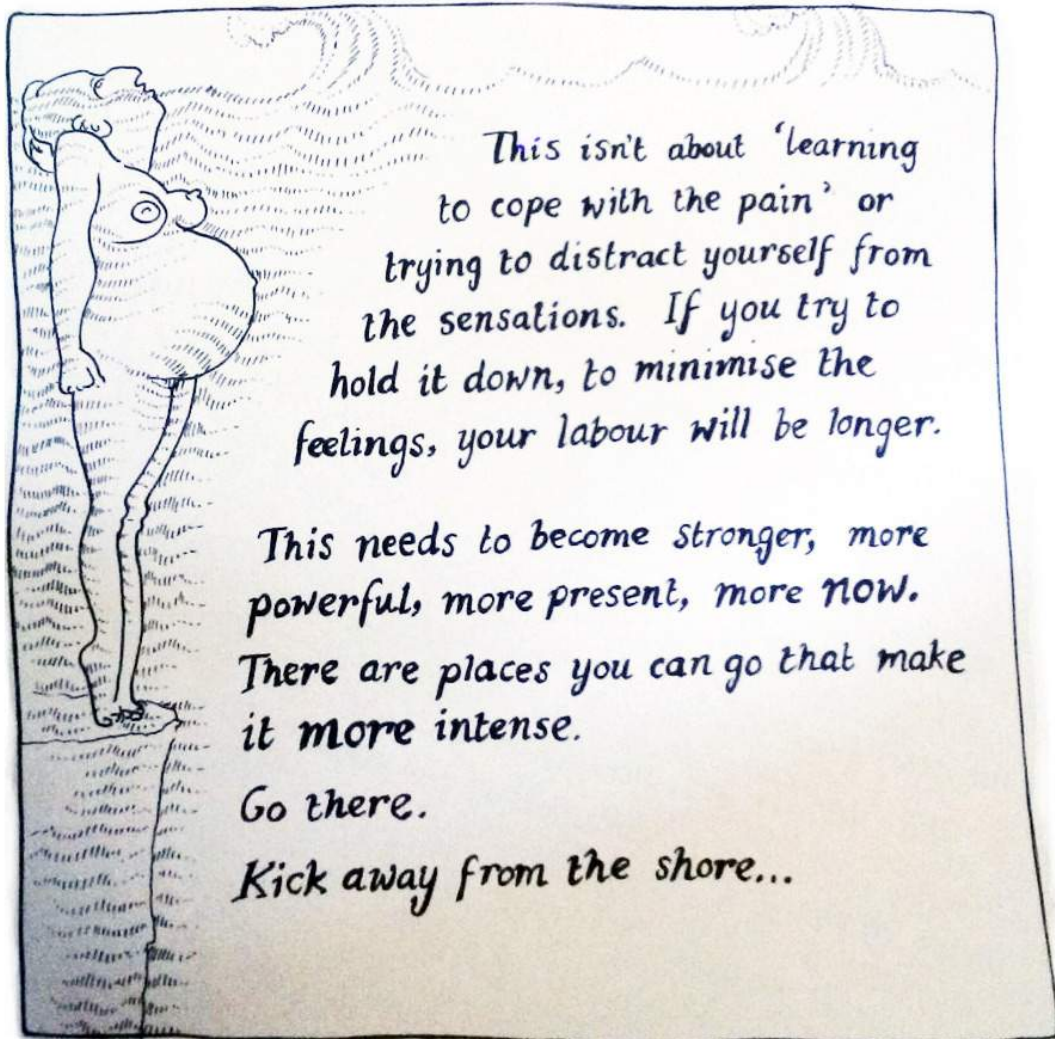 This isn't about 'learning
to cope with the pain' or
trying to distract yourself from
the sensations. If you try to
hold it down, to minimise the
feelings, your labour will be longer.
This needs to become stronger, more
powerful, more present, more now.
There are places you can go that make
it more intense.
Go there.
Kick away from the shore...